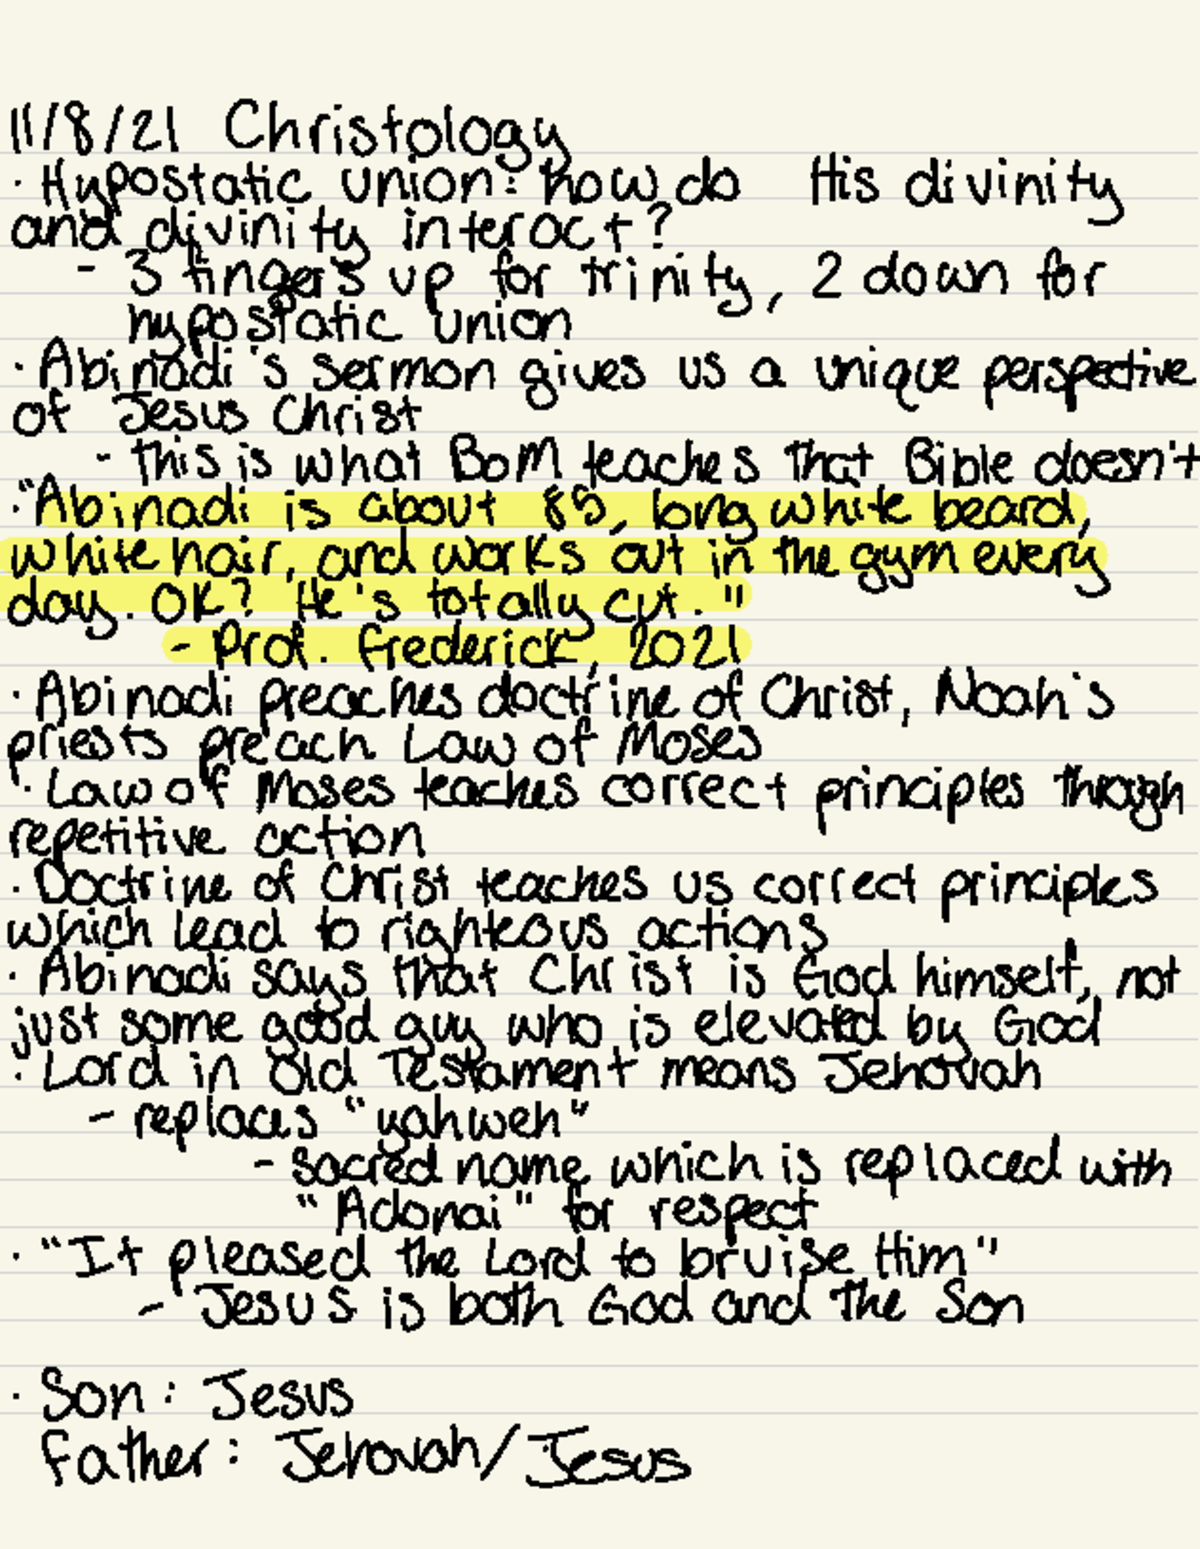 11/8/21 Christology
· Hypostatic union: how do His divinity
and divinity interact?
- 3 fingers up for trinity, 2 down for
hypostatic union
· Abinadi's sermon gives us a unique perspective
of Jesus Christ
- this is what BoM teaches that Bible doesn't
· "Abinadi is about 85, long white beard,
white hair, and works out in the gym every
day. OK? He's totally cut."
- Prof. Frederick, 2021
· Abinadi preaches doctrine of Christ, Noah's
priests preach Law of Moses
· Law of Moses teaches correct principles through
repetitive action
· Doctrine of Christ teaches us correct principles
which lead to righteous actions
· Abinadi says that Christ is God himself, not
just some good guy who is elevated by God
· Lord in Old Testament means Jehovah
- replaces "yahweh"
- sacred name which is replaced with
"Adonai" for respect
· "It pleased the Lord to bruise Him"
- Jesus is both God and the Son
· Son: Jesus
Father: Jehovah/Jesus